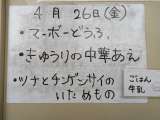 4月26日(金)
・マーボーどうふ
・きゅうりの中華あえ
・ツナとチンゲンサイの
いためもの
ごはん
牛乳